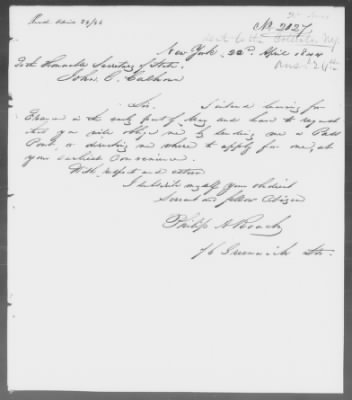 Recd April 23/44
No 2027
New York, 22d April 1844
To the Honorable Secretary of State.
John C. Calhoun
Sir. I intend leaving for
Europe in the early part of May and have to request
that you will oblige me by sending me a Pass
Port, or directing me where to apply for one, at
your earliest Convenience.
With respect and esteem
I subscribe myself your obedient
Servant and fellow Citizen
Philip A Roach
76 Greenwich Str.